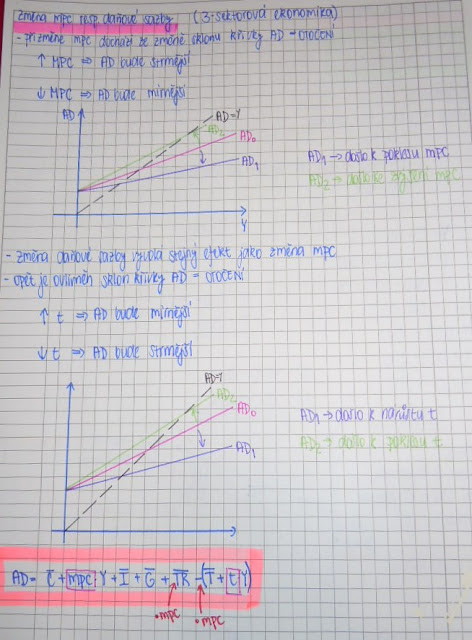 změna mpc resp. daňové sazby (3-sektorová ekonomika)
- při změně mpc dochází ke změně sklonu křivky AD = OTOČENÍ
↑ MPC ⇒ AD bude strmější
↓ MPC ⇒ AD bude mírnější
AD
AD=Y
AD₂
AD₀
AD₁
Y
AD₁ → došlo k poklesu mpc
AD₂ → došlo ke zvýšení mpc
- změna daňové sazby vyvolá stejný efekt jako změna mpc
- opět je ovlivněn sklon křivky AD = OTOČENÍ
↑ t ⇒ AD bude mírnější
↓ t ⇒ AD bude strmější
AD=Y
AD₂
AD₀
AD₁
AD₁ → došlo k nárůstu t
AD₂ → došlo k poklesu t
AD = C̅ + mpc·Y + I̅ + G̅ + T̅R̅ - (T̅ + t·Y)
·mpc
·mpc